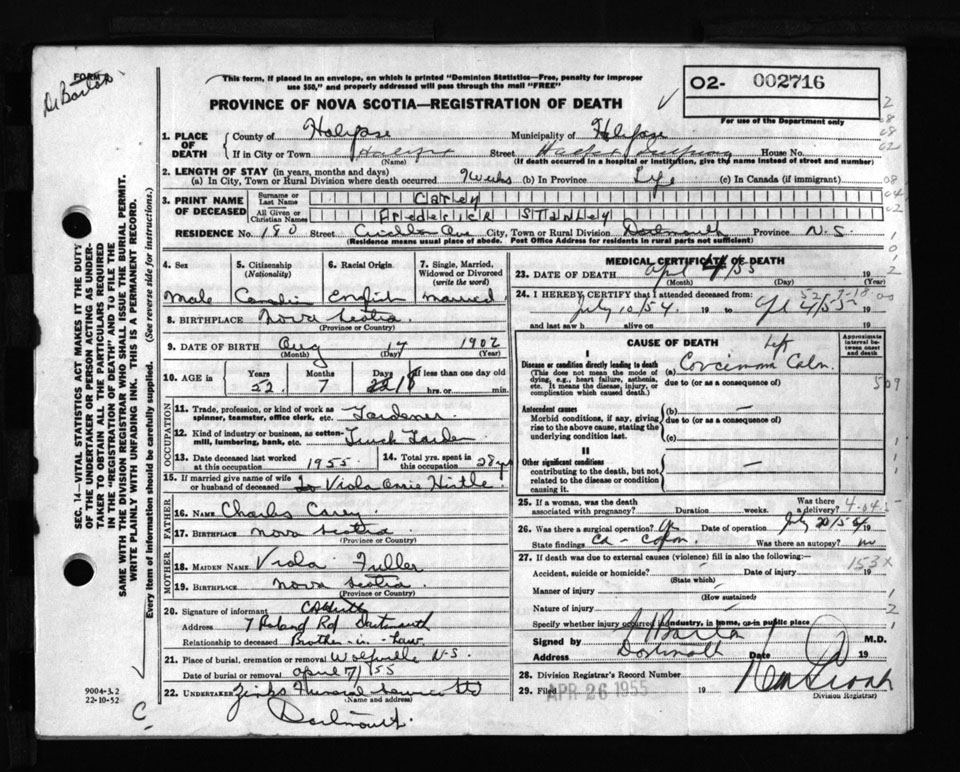 FORM
DeBarton
This form, if placed in an envelope, on which is printed "Dominion Statistics—Free, penalty for improper use $50," and properly addressed will pass through the mail "FREE"
PROVINCE OF NOVA SCOTIA—REGISTRATION OF DEATH
O2- 002716
For use of the Department only
1. PLACE OF DEATH
County of Halifax Municipality of Halifax
If in City or Town Halifax Street Halifax House No.
(Name) (If death occurred in a hospital or institution, give the name instead of street and number)
2. LENGTH OF STAY (in years, months and days)
(a) In City, Town or Rural Division where death occurred Weeks (b) In Province Life (c) In Canada (if immigrant)
3. PRINT NAME OF DECEASED
Surname or Last Name Carey
All Given or Christian Names Frederick Stanley
RESIDENCE No. 180 Street Crichton Ave City, Town or Rural Division Dartmouth Province N.S.
(Residence means usual place of abode. Post Office Address for residents in rural parts not sufficient)
4. Sex
Male
5. Citizenship (Nationality)
6. Racial Origin
English
7. Single, Married, Widowed or Divorced (write the word)
Married
8. BIRTHPLACE Nova Scotia
(Province or Country)
9. DATE OF BIRTH Aug 17 1902
(Month) (Day) (Year)
10. AGE in Years Months Days If less than one day old
52 7 18 hrs. or min.
OCCUPATION
11. Trade, profession, or kind of work as spinner, teamster, office clerk, etc. Gardener
12. Kind of industry or business, as cotton-mill, lumbering, bank, etc. Truck Garden
13. Date deceased last worked at this occupation 1955
14. Total yrs. spent in this occupation 28 yrs
15. If married give name of wife or husband of deceased to Viola Hirtle
FATHER
16. NAME Charles Carey
17. BIRTHPLACE Nova Scotia
(Province or Country)
MOTHER
18. MAIDEN NAME Viola Fuller
19. BIRTHPLACE Nova Scotia
(Province or Country)
20. Signature of informant
Address 7 Rd Dartmouth
Relationship to deceased Brother-in-Law
21. Place of burial, cremation or removal Wolfville N.S.
Date of burial or removal April 7/55
22. UNDERTAKER Zinks Funeral Service Ltd
(Name and address)
Dartmouth
MEDICAL CERTIFICATE OF DEATH
23. DATE OF DEATH April 4/55 19
(Month) (Day) (Year)
24. I HEREBY CERTIFY that I attended deceased from
July 10/54 19 to 4/55 19
and last saw h alive on 19
CAUSE OF DEATH
Approximate interval between onset and death
I
Disease or condition directly leading to death (a) Left Carcinoma Colon
(This does not mean the mode of dying, e.g., heart failure, asthenia, etc. It means the disease, injury, or complication which caused death.)
due to (or as a consequence of)
Antecedent causes (b) —
Morbid conditions, if any, giving rise to the above cause, stating the underlying condition last.
due to (or as a consequence of)
(c)
II
Other significant conditions —
contributing to the death, but not related to the disease or condition causing it.
25. If a woman, was the death associated with pregnancy? Duration weeks. Was there a delivery?
26. Was there a surgical operation? Yes Date of operation July 20/54 19
State findings Ca - Colon Was there an autopsy? no
27. If death was due to external causes (violence) fill in also the following:—
Accident, suicide or homicide? Date of injury 19
(State which)
Manner of injury
(How sustained)
Nature of injury
Specify whether injury occurred in industry, in home, or in public place
Signed by M.D.
Address Dartmouth Date 19
28. Division Registrar's Record Number
29. Filed APR 26 1955 19
Division Registrar)
SEC. 14—VITAL STATISTICS ACT MAKES IT THE DUTY OF THE UNDERTAKER OR PERSON ACTING AS UNDERTAKER TO OBTAIN ALL THE PARTICULARS REQUIRED IN THE "REGISTRATION OF DEATH" AND TO FILE THE SAME WITH THE DIVISION REGISTRAR WHO SHALL ISSUE THE BURIAL PERMIT.
WRITE PLAINLY WITH UNFADING INK. THIS IS A PERMANENT RECORD.
Every item of information should be carefully supplied. (See reverse side for instructions.)
9004-3.2
22-10-52
C